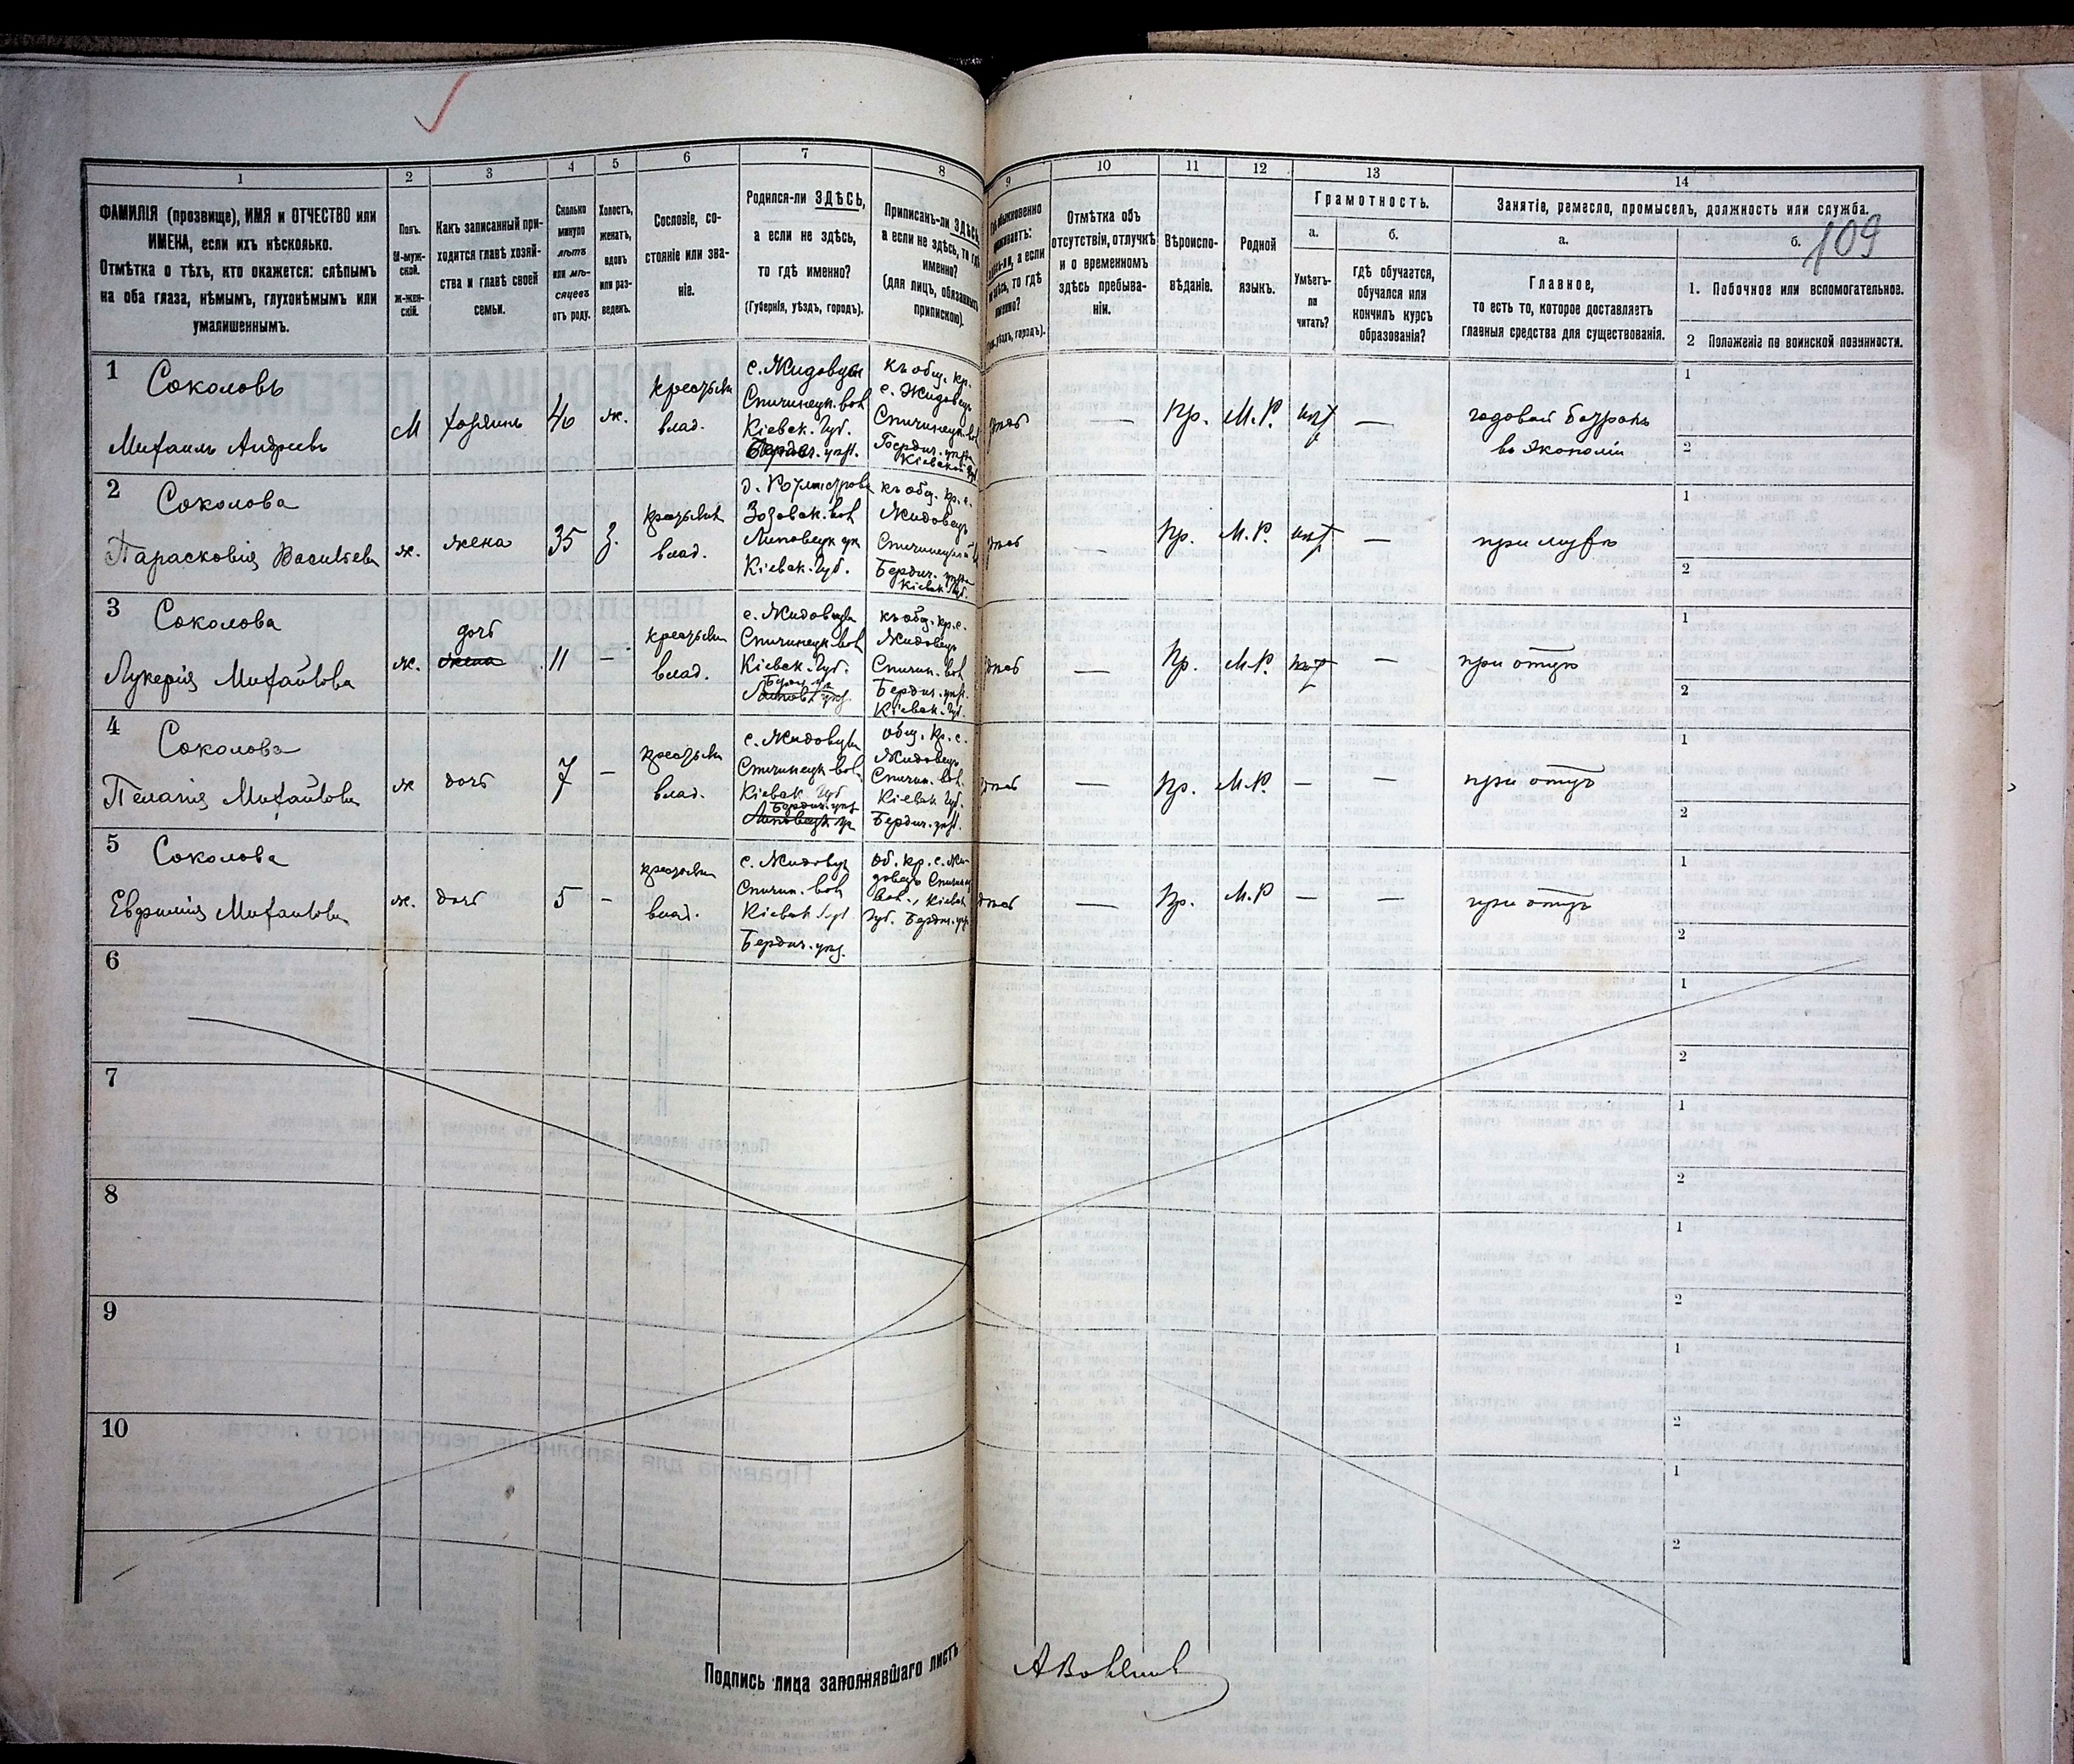 109
1
2
3
4
5
6
7
8
9
10
11
12
13
14
ФАМИЛІЯ (прозвище), ИМЯ и ОТЧЕСТВО или
ИМЕНА, если ихъ нѣсколько.
Отмѣтка о тѣхъ, кто окажется: слѣпымъ
на оба глаза, нѣмымъ, глухонѣмымъ или
умалишеннымъ.
Полъ.
М-муж-
ской.
ж-жен-
скій.
Какъ записанный при-
ходится главѣ хозяй-
ства и главѣ своей
семьи.
Сколько
минуло
лѣтъ
или мѣ-
сяцевъ
отъ роду.
Холостъ,
женатъ,
вдовъ
или раз-
веденъ.
Сословіе, со-
стояніе или зва-
ніе.
Родился-ли ЗДѢСЬ,
а если не здѣсь,
то гдѣ именно?
(Губернія, уѣздъ, городъ).
Приписанъ-ли ЗДѢСЬ,
а если не здѣсь, то гдѣ
именно?
(для лицъ, обязанныхъ
припискою).
обыкновенно
а если
то гдѣ
именно?
уѣздъ, городъ).
Отмѣтка объ
отсутствіи, отлучкѣ
и о временномъ
здѣсь пребыва-
ніи.
Вѣроиспо-
вѣданіе.
Родной
языкъ.
Грамотность.
а.
Умѣетъ-
ли
читать?
б.
гдѣ обучается,
обучался или
кончилъ курсъ
образованія?
Занятіе, ремесло, промыселъ, должность или служба.
а.
Главное,
то есть то, которое доставляетъ
главныя средства для существованія.
б.
1. Побочное или вспомогательное.
2 Положеніе по воинской повинности.
1
Соколовъ
Михаилъ Андреевъ
М
хозяинъ
40
ж.
крестьян
влад.
с. Жидовцы
Спичинецк. вол
Кіевск. Губ.
Бердич. уѣзд.
къ общ. кр.
с. Жидовецъ
Спичинецк. вол
Бердич. уѣзда
Кіевской Губ
здѣсь
—
Пр.
М.Р.
нѣт
—
годовой батракъ
въ Экономіи
1
2
2
Соколова
Парасковія Васильева
ж.
жена
35
З.
крестьян
влад.
Зозовск. вол
Липовецк уѣ
Кіевск. Губ.
къ общ. кр. с.
Жидовецъ
Спичинецкой
Бердич. уѣзда
Кіевск Губ.
здѣсь
—
Пр.
М.Р.
нѣт
—
при мужѣ
1
2
3
Соколова
Лукерія Михайлова
ж.
дочь
жена
11
–
крестьян
влад.
с. Жидовцы
Спичинецк. вол
Кіевск. Губ.
Берд. уѣ
Липов. уѣзд
къ общ. кр. с.
Жидовецъ
Спичин. вол
Бердич. уѣзд.
Кіевск. Губ.
здѣсь
—
Пр.
М.Р.
нѣт
—
при отцѣ
1
2
4
Соколова
Пелагія Михайлова
ж
дочь
7
–
крестьян
влад.
с. Жидовцы
Спичинецк вол.
Кіевск. Губ
Бердич. уѣзд
Липовецк уѣ
общ. кр. с.
Жидовецъ
Спичин. вол.
Кіевск Губ.
Бердич. уѣзд.
здѣсь
—
Пр.
М.Р.
—
—
при отцѣ
1
2
5
Соколова
Евфимія Михайлова
ж.
дочь
5
–
крестьян
влад.
с. Жидовцы
Спичин. вол
Кіевск Губ
Бердич. уѣзд.
об. кр. с. Жи-
довецъ Спичинец
вол., Кіевск
Губ. Бердич. уѣз.
здѣсь
—
Пр.
М.Р
—
—
при отцѣ
1
2
6
1
2
7
1
2
8
1
2
9
1
2
10
1
2
Подпись лица заполнявшаго листъ